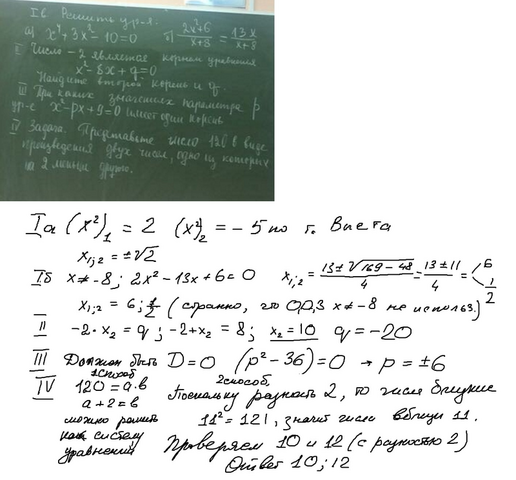 I в. Решить ур-я:
а) x⁴+3x²-10=0 б) 2x²+6/x+8 = 13x/x+8
II Число -2 является корнем уравнения
x²-8x+q=0
Найдите второй корень и q.
III При каких значениях параметра p
ур-е x²-px+9=0 имеет один корень
IV Задача. Представьте число 120 в виде
произведения двух чисел, одно из которых
на 2 меньше другого.
Iа (x²)₁ = 2 (x²)₂ = -5 по т. Виета
x₁;₂ = ±√2
Iб x≠-8; 2x²-13x+6=0 x₁;₂ = 13±√169-48/4 = 13±11/4 = 6 1/2
x₁;₂ = 6; 1/2 (странно, что О.Д.З x≠-8 не использ.)
II -2·x₂=q; -2+x₂=8; x₂=10 q=-20
III Должен быть D=0 (p²-36)=0 → p=±6
IV 1 способ
120=a·b
a+2=b
можно решить
как систему
уравнений
2 способ,
Поскольку разность 2, то числа близкие
11²=121, значит числа вблизи 11.
Проверяем 10 и 12 (с разностью 2)
Ответ 10; 12